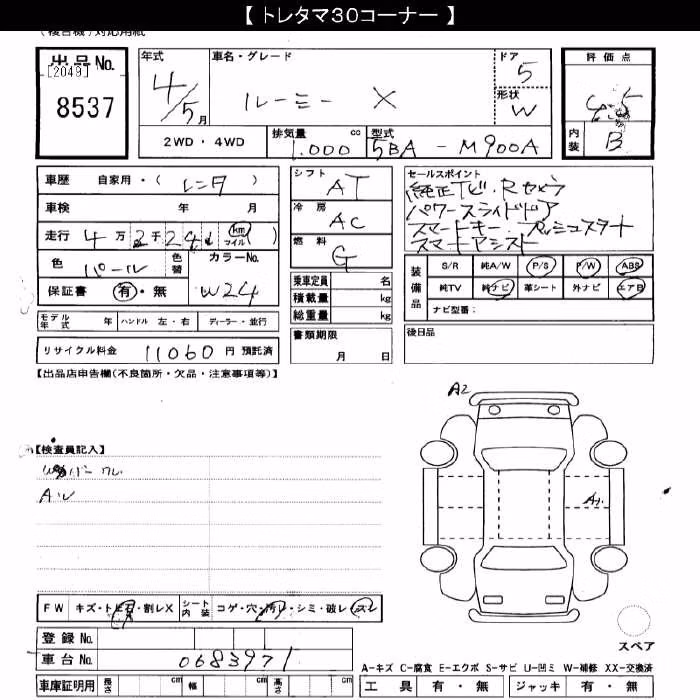 【 トレタマ30コーナー 】
(複合機)対応用紙
出品 No.
[2049]
8537
年式
4/5月
車名・グレード
ルーミー X
ドア
5
形状
W
評価点
4.5
内装
B
2WD・4WD
排気量 cc
1.000
型式
5BA - M900A
車歴 自家用・( レンタ
車検 年 月
走行 4万2千24 km マイル )
色 パール
色替
カラーNo.
W24
保証書 有・無
モデル年式 年 ハンドル 左・右 ディーラー・並行
リサイクル料金 11060 円 預託済
シフト
AT
冷房
AC
燃料
G
乗車定員 名
積載量 kg
総重量 kg
書類期限
月 日
セールスポイント
純正TV.Rカメラ
パワースライドドア
スマートキー.プッシュスタート
スマートアシスト
装備品
S/R 純A/W P/S P/W ABS
純TV 純ナビ 革シート 外ナビ エアB
ナビ型番:
後日品
【出品店申告欄(不良箇所・欠品・注意事項等)】
【検査員記入】
A2
A1
FW キズ・トビ石・割レX
シート内装 コゲ・穴・汚レ・シミ・破レ・スレ
登録 No.
車台 No. 0683971
車庫証明用 長さ cm 幅 cm 高さ cm
スペア
A-キズ C-腐食 E-エクボ S-サビ U-凹ミ W-補修 XX-交換済
工具 有・無 ジャッキ 有・無